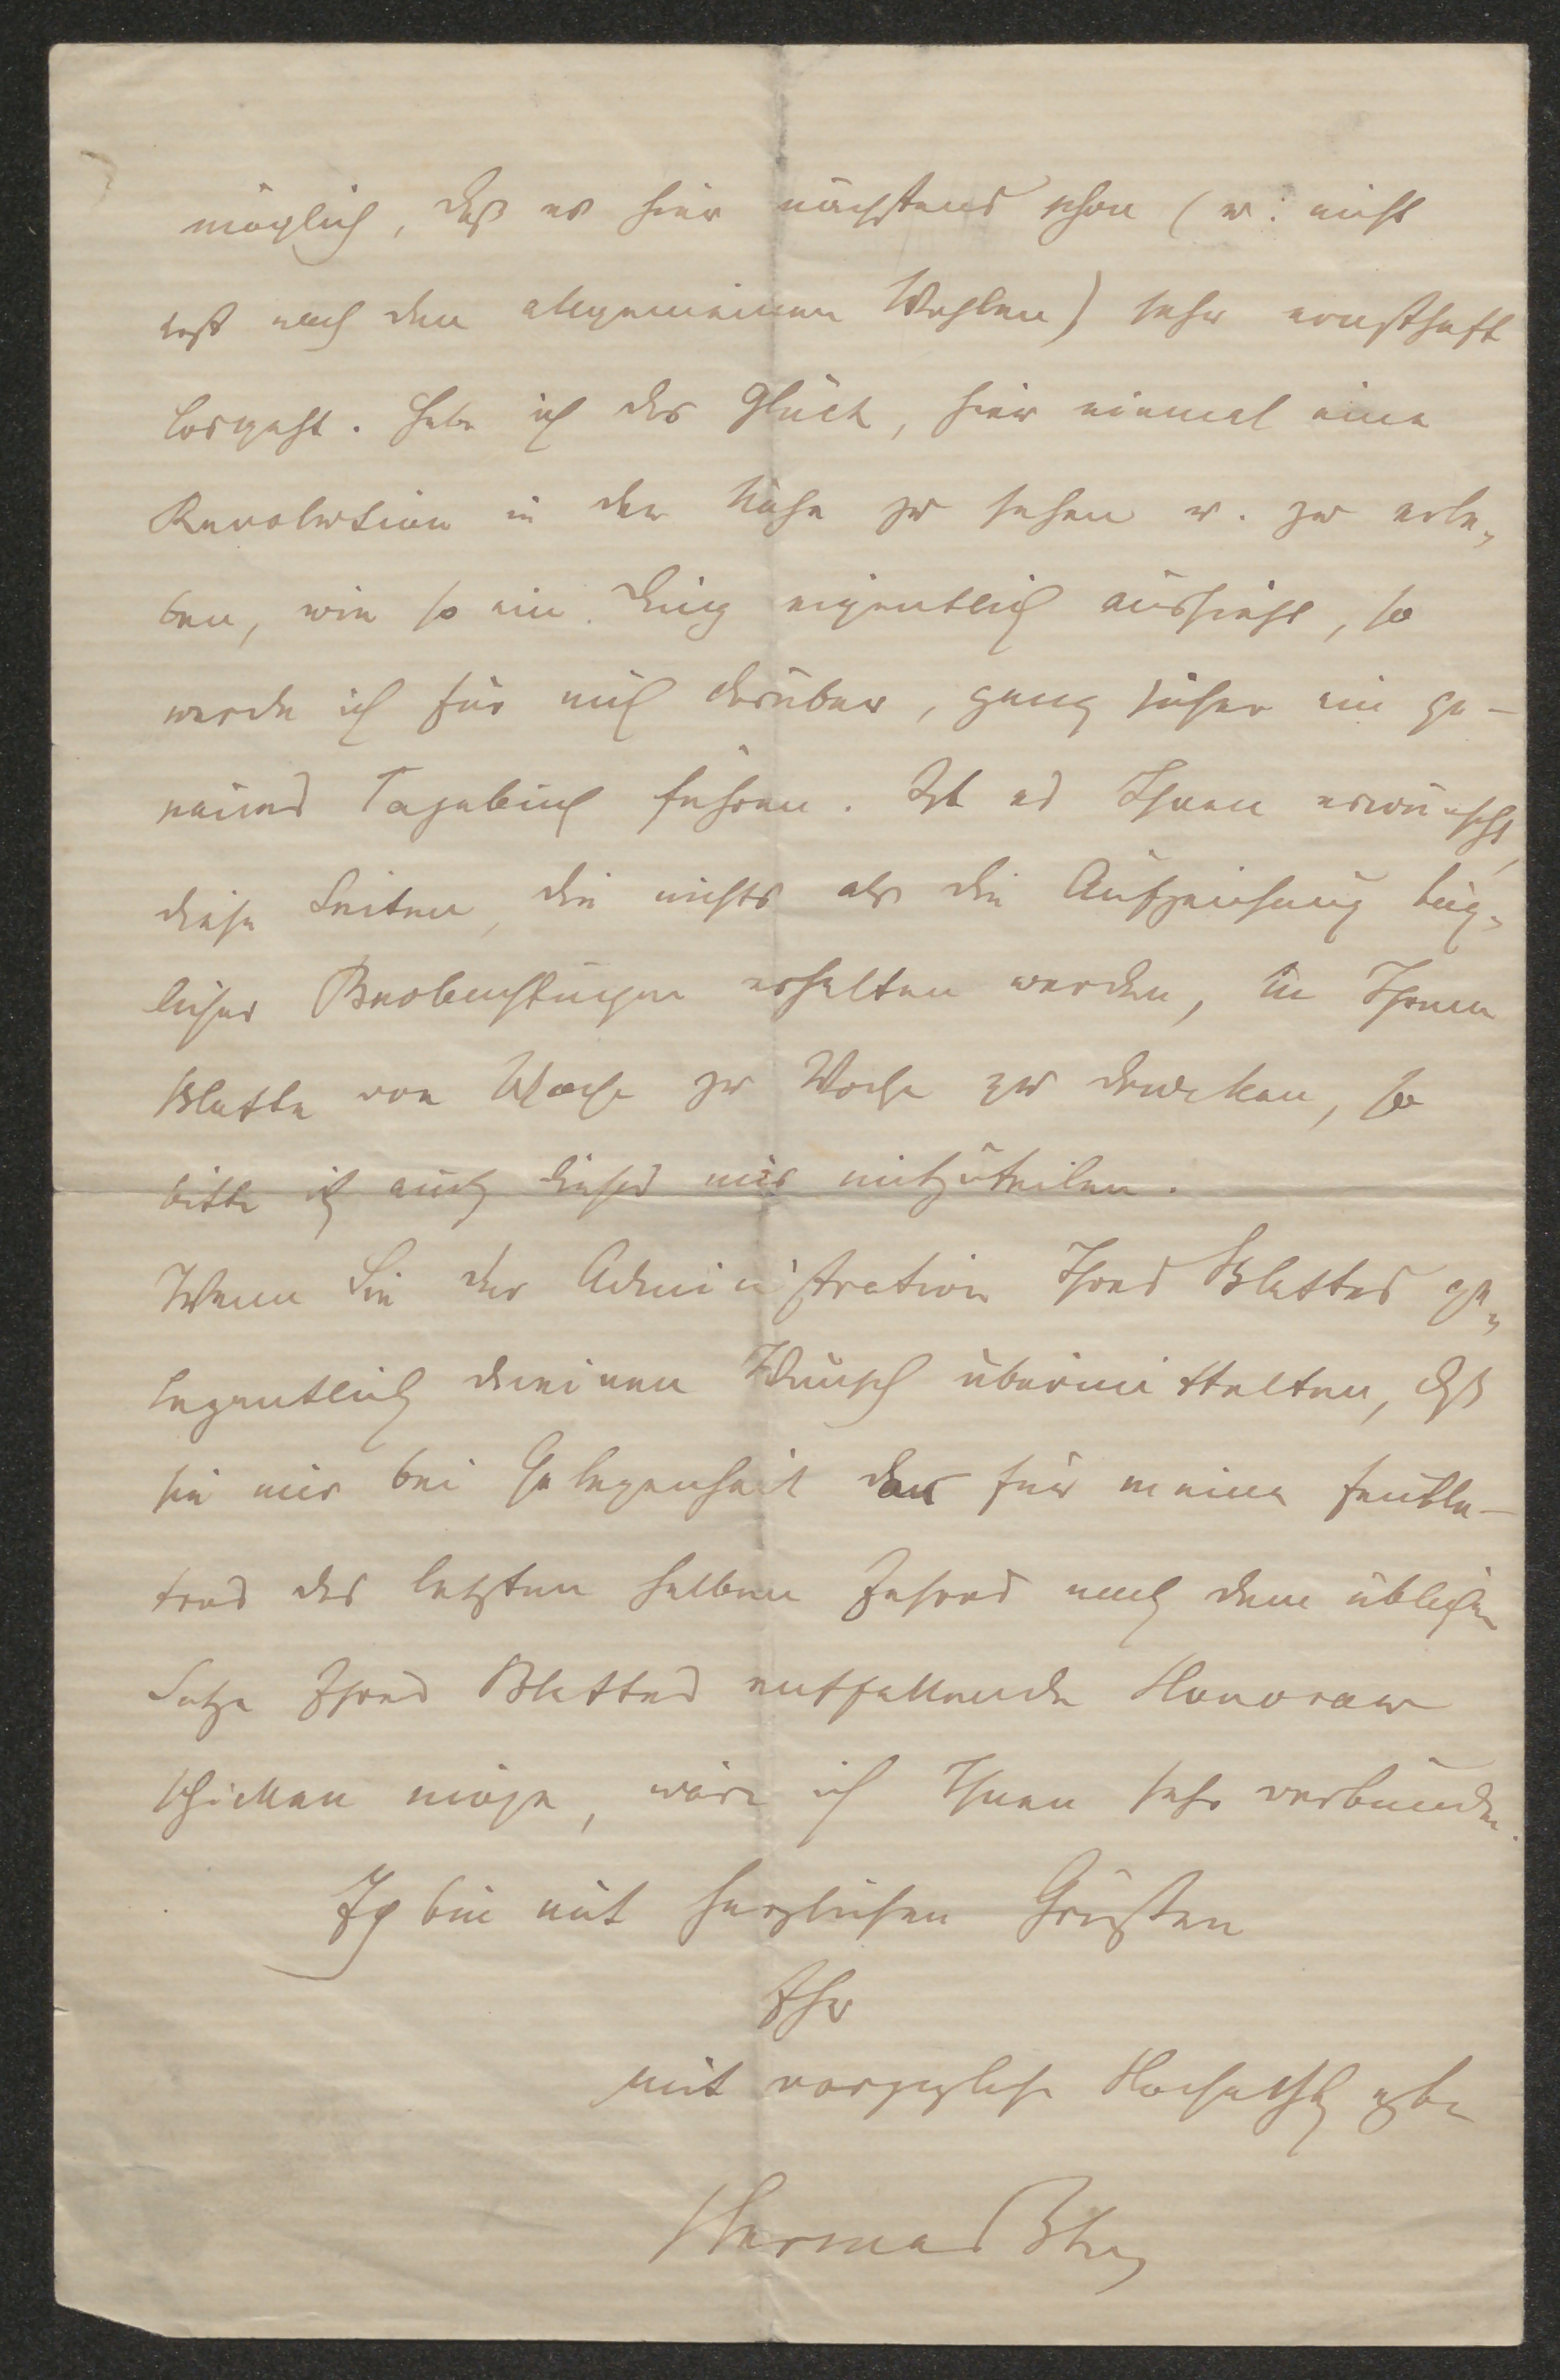 möglich, daß es hier nächstens schon (u. nicht
erst nach den allgemeinen Wahlen) sehr ernsthaft
losgeht. Habe ich das Glück, hier einmal eine
Revolution in der Nähe zu sehen u. zu erle-
ben, wie so ein Ding eigentlich aussieht, so
werde ich für mich darüber, ganz sicher ein ge-
naues Tagebuch führen. Ist es Ihnen erwünscht,
diese Seiten, die nichts als die Aufzeichnung täg-
licher Beobachtungen erhalten werden, in Ihrem
Blatte von Woche zu Woche zu drucken, so
bitte ich auch dieses mir mitzuteilen.
Wenn Sie der Administration Ihres Blattes ge-
legentlich meinen Wunsch übermittelten, daß
sie mir bei Gelegenheit das für meine Feuille-
tons des letzten halben Jahres nach dem üblichen
Satze Ihres Blattes entfallende Honorar
schicken möge, wäre ich Ihnen sehr verbunden.
Ich bin mit herzlichen Grüßen
Ihr
mit vorzüglicher Hochachtung ergebener
Hermann Bahr